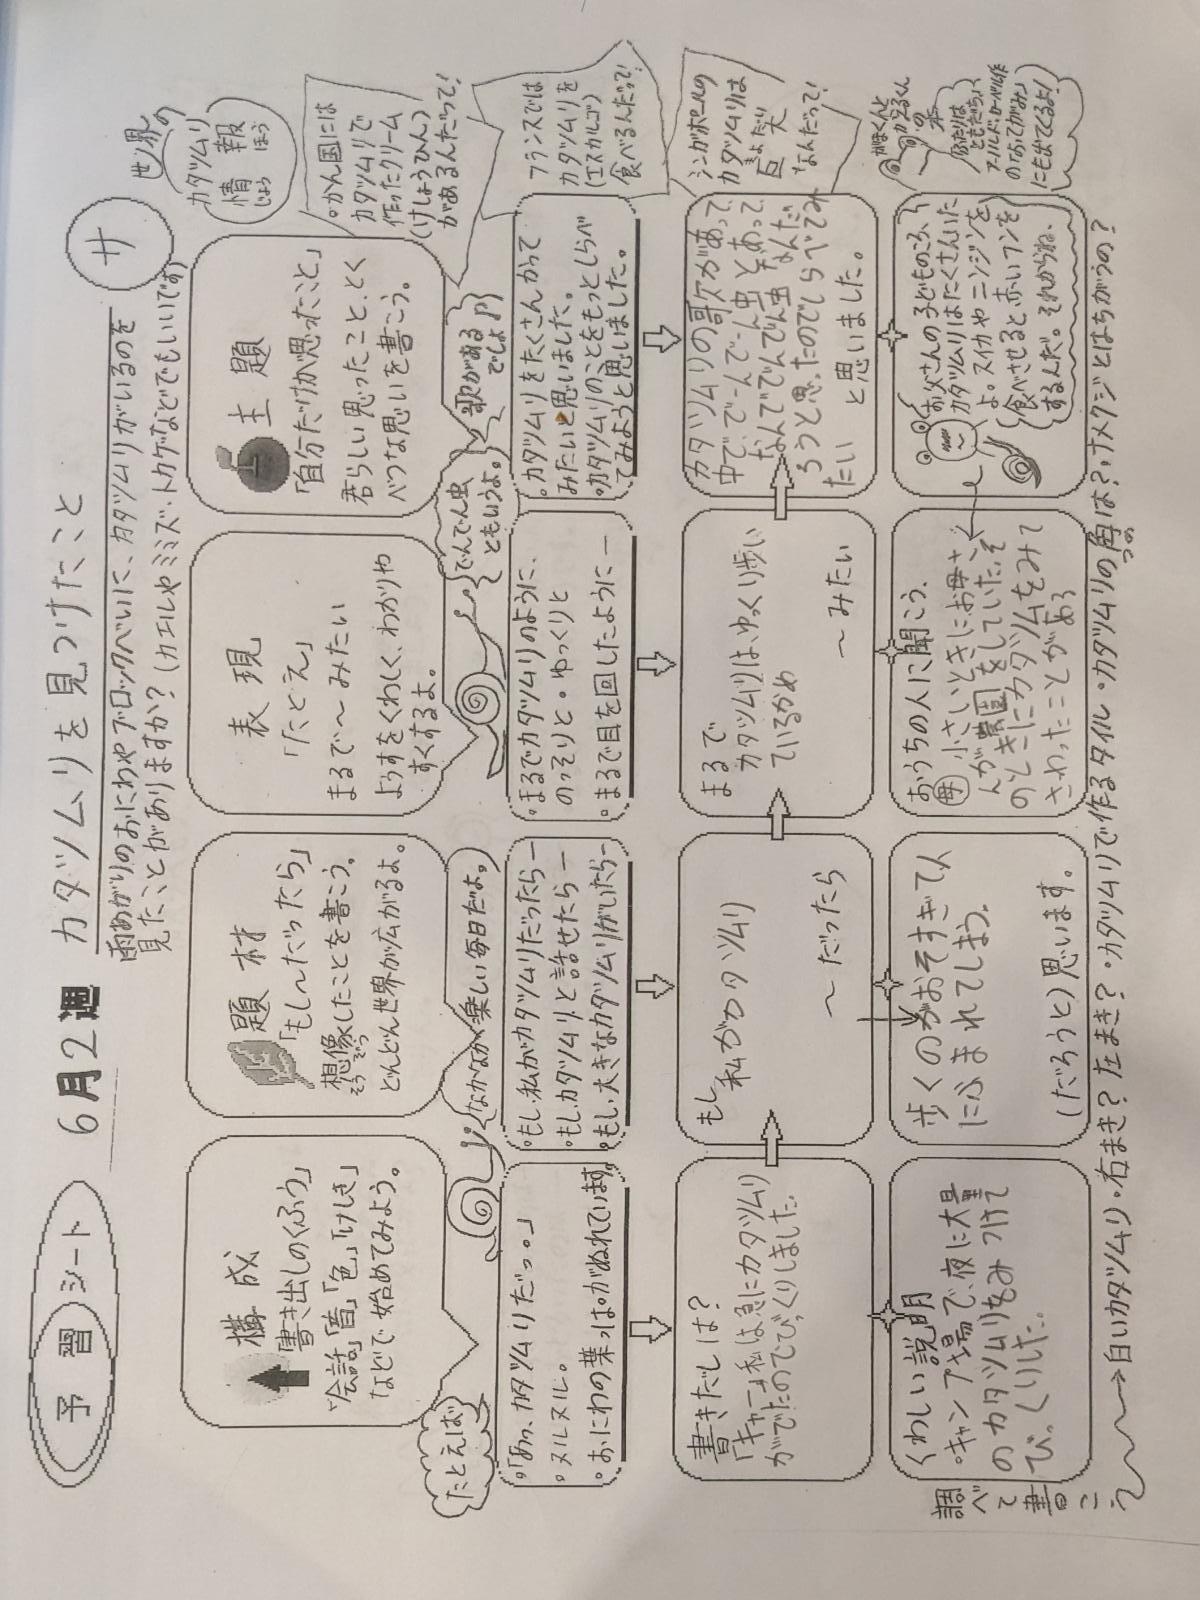 予習シート
6月2週 カタツムリを見つけたこと
サ
雨あがりのおにわやブロックべいに、カタツムリがいるのを
見たことがありますか?(カエルやミミズ・トカゲなどでもいいです)
世界の
カタツムリ
情報
じょう ほう
構成
書き出しのくふう
「会話」「音」「色」「けしき」
などで始めてみよう。
題材
「もし〜だったら」
想像したことを書こう。
そうぞう
どんどん世界が広がるよ。
表現
「たとえ」
まるで〜みたい
ようすをくわしく、わかりや
すくするよ。
主題
「自分だけが思ったこと」
君らしい思ったこと、とく
べつな思いを書こう。
・かん国には
カタツムリで
作ったクリーム
(けしょうひん)
があるんだって!
フランスでは
カタツムリを
(エスカルゴ)
食べるんだって!
シンガポールの
カタツムリは
きょだい
巨大
なんだって!
がまくんと
かえるくん
の本
ふたりはともだち
アーノルド・ローベル作
にも出てるよ!
たとえば
なかなか楽しい毎日だよ。
でんでん虫
ともいうよ。
歌がある
でしょ♪
・「あっ、カタツムリだっ。」
・ヌルヌル。
・おにわの葉っぱがぬれています。
・もし、私がカタツムリだったらー
・もし、カタツムリと話せたらー
・もし、大きなカタツムリがいたらー
・まるでカタツムリのように、
のっそりと。ゆっくりと
・まるで目を回したようにー
・カタツムリをたくさんかって
みたいと思いました。
・カタツムリのことをもっとしらべ
てみようと思いました。
書きだしは?
「キャー」私は急にカタツムリ
がでたのでびっくりしました。
もし
私がカタツムリ
〜だったら
まるで
カタツムリは、ゆっくり歩い
ているかめ
〜みたい
カタツムリの歌があって、
中で、でーんでーん虫とあって
なんででんでん虫なんだ
ろうと思ったのでしらべてみ
たい と思いました。
くわしい説明
・キャンプ場で、夜に大量
のカタツムリをみつけて
びっくりした。
歩くのがおそすぎて人
にふまれてしまう。
(だろうと)思います。
おうちの人に聞こう。
母 小さいときにお母さ
んが農園をしていた。そ
のときにカタツムをみて
さわったことがある
お父さんの子どものころ、
カタツムリはたくさんいた
よ。スイカやニンジンを
食べさせると赤いフンを
するんだ。それからね、
調べて書こう
→白いカタツムリ・右まき?左まき?・カタツムリで作るタイル・カタツムリの角は?・ナメクジとはちがうの?
つの